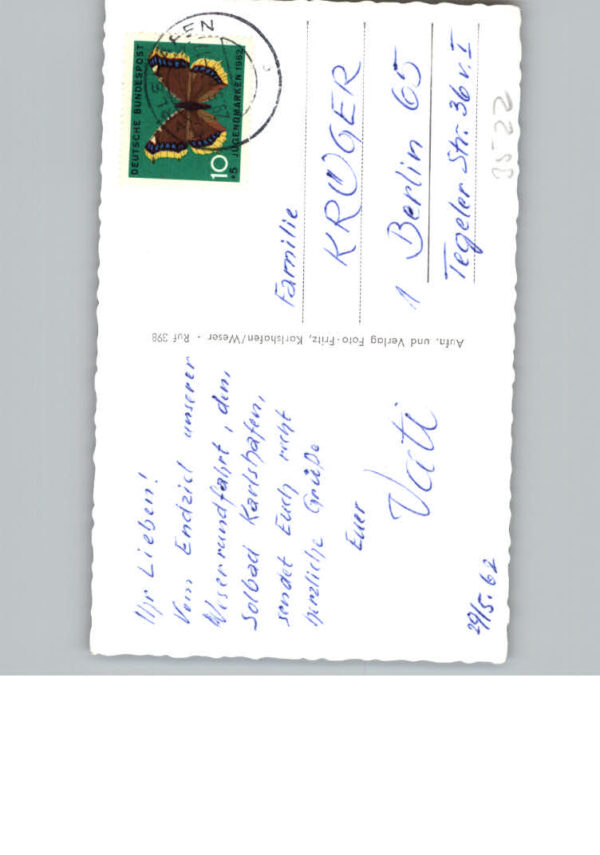 Ihr Lieben!
Vom Endziel unserer
Weserrundfahrt, dem
Solbad Karlshafen,
sendet Euch recht
herzliche Grüße
Euer
Vati
29/5.62
Aufn. und Verlag Foto-Fritz, Karlshafen/Weser • Ruf 398
DEUTSCHE BUNDESPOST
10
+5 JUGENDMARKEN 1962
Familie
KRÜGER
1 Berlin 65
Tegeler Str. 36 v. I
3522